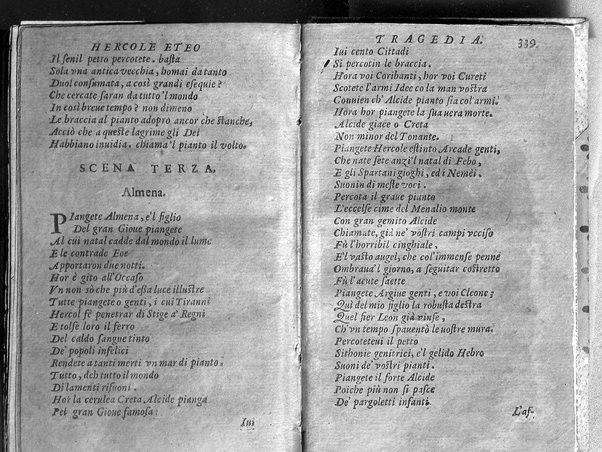 HERCOLE ETEO
Il senil petto percotete. basta
Sola vna antica vecchia, homai da tanto
Duol consumata, a così grandi esequie?
Che cercate saran da tutto 'l mondo
In così breue tempo? è non dimeno
Le braccia al pianto adopro ancor che stanche,
Acciò che a queste lagrime gli Dei
Habbiano inuidia, chiama 'l pianto il volto.
SCENA TERZA.
Almena.
Piangete Almena, e'l figlio
Del gran Gioue piangete
Al cui natal cadde dal mondo il lume
E le contrade Eoe
Apportaron due notti.
Hor è gito all'Occaso
Vn non sò che più d'essa luce illustre
Tutte piangete o genti, i cui Tiranni
Hercol fè penetrar di Stige a' Regni
E tolse loro il ferro
Del caldo sangue tinto
De' popoli infelici
Rendete a tanti merti vn mar di pianto.
Tutto, deh tutto il mondo
Di lamenti risuoni.
Hor la cerulea Creta Alcide pianga
Pel gran Gioue famosa:
Iui
TRAGEDIA. 339
Iui cento Cittadi
Si percotin le braccia.
Hora voi Coribanti, hor voi Cureti
Scotete l'armi Idee co la man vostra
Conuien ch'Alcide pianto sia col'armi.
Hora hor piangete la sua uera morte.
Alcide giace o Creta
Non minor del Tonante.
Piangete Hercole estinto Arcade genti,
Che nate sete anzi'l natal di Febo,
E gli Spartani gioghi, ed i Nemèi.
Suonin di meste voci.
Percota il graue pianto
L'eccelse cime del Menalio monte
Con gran gemito Alcide
Chiamate, già ne' vostri campi vcciso
Fù l'horribil cinghiale,
E'l vasto augel, che col'immense penne
Ombraua'l giorno, a seguitar costretto
Fù l'acute saette
Piangete Argiue genti, e voi Cleone;
Quì del mio figlio la robusta destra
Quel fier Leon già vinse,
Ch'vn tempo spauentò le uostre mura.
Percoteteui il petto
Sithonie genitrici, e'l gelido Hebro
Suoni de' vostri pianti.
Piangete il forte Alcide
Poiche più non si pasce
De' pargoletti infanti.
L'as-